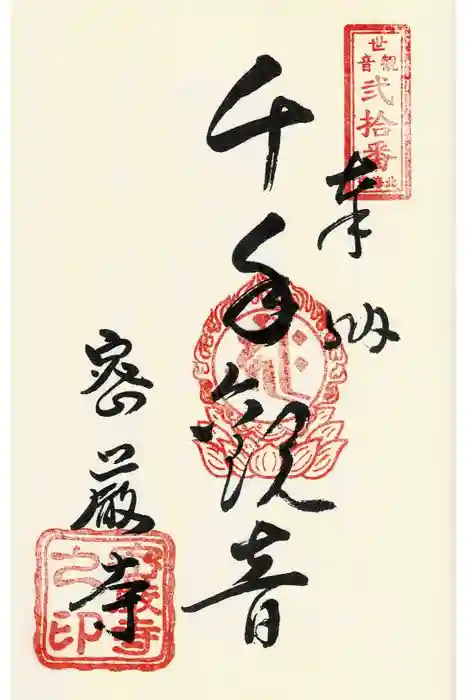 世観音
弐拾番
奉納
千手観音
密厳寺
密厳寺之印